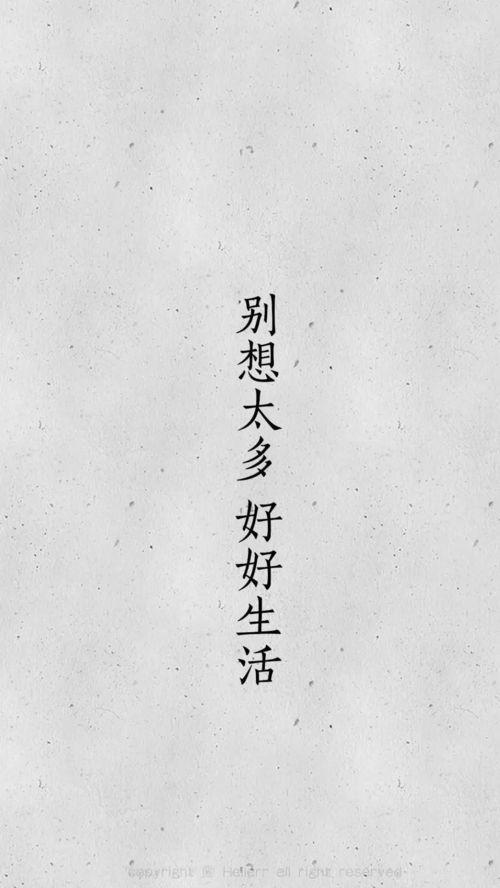 别想太多 好好生活
copyright @ Hellerr all right reserved